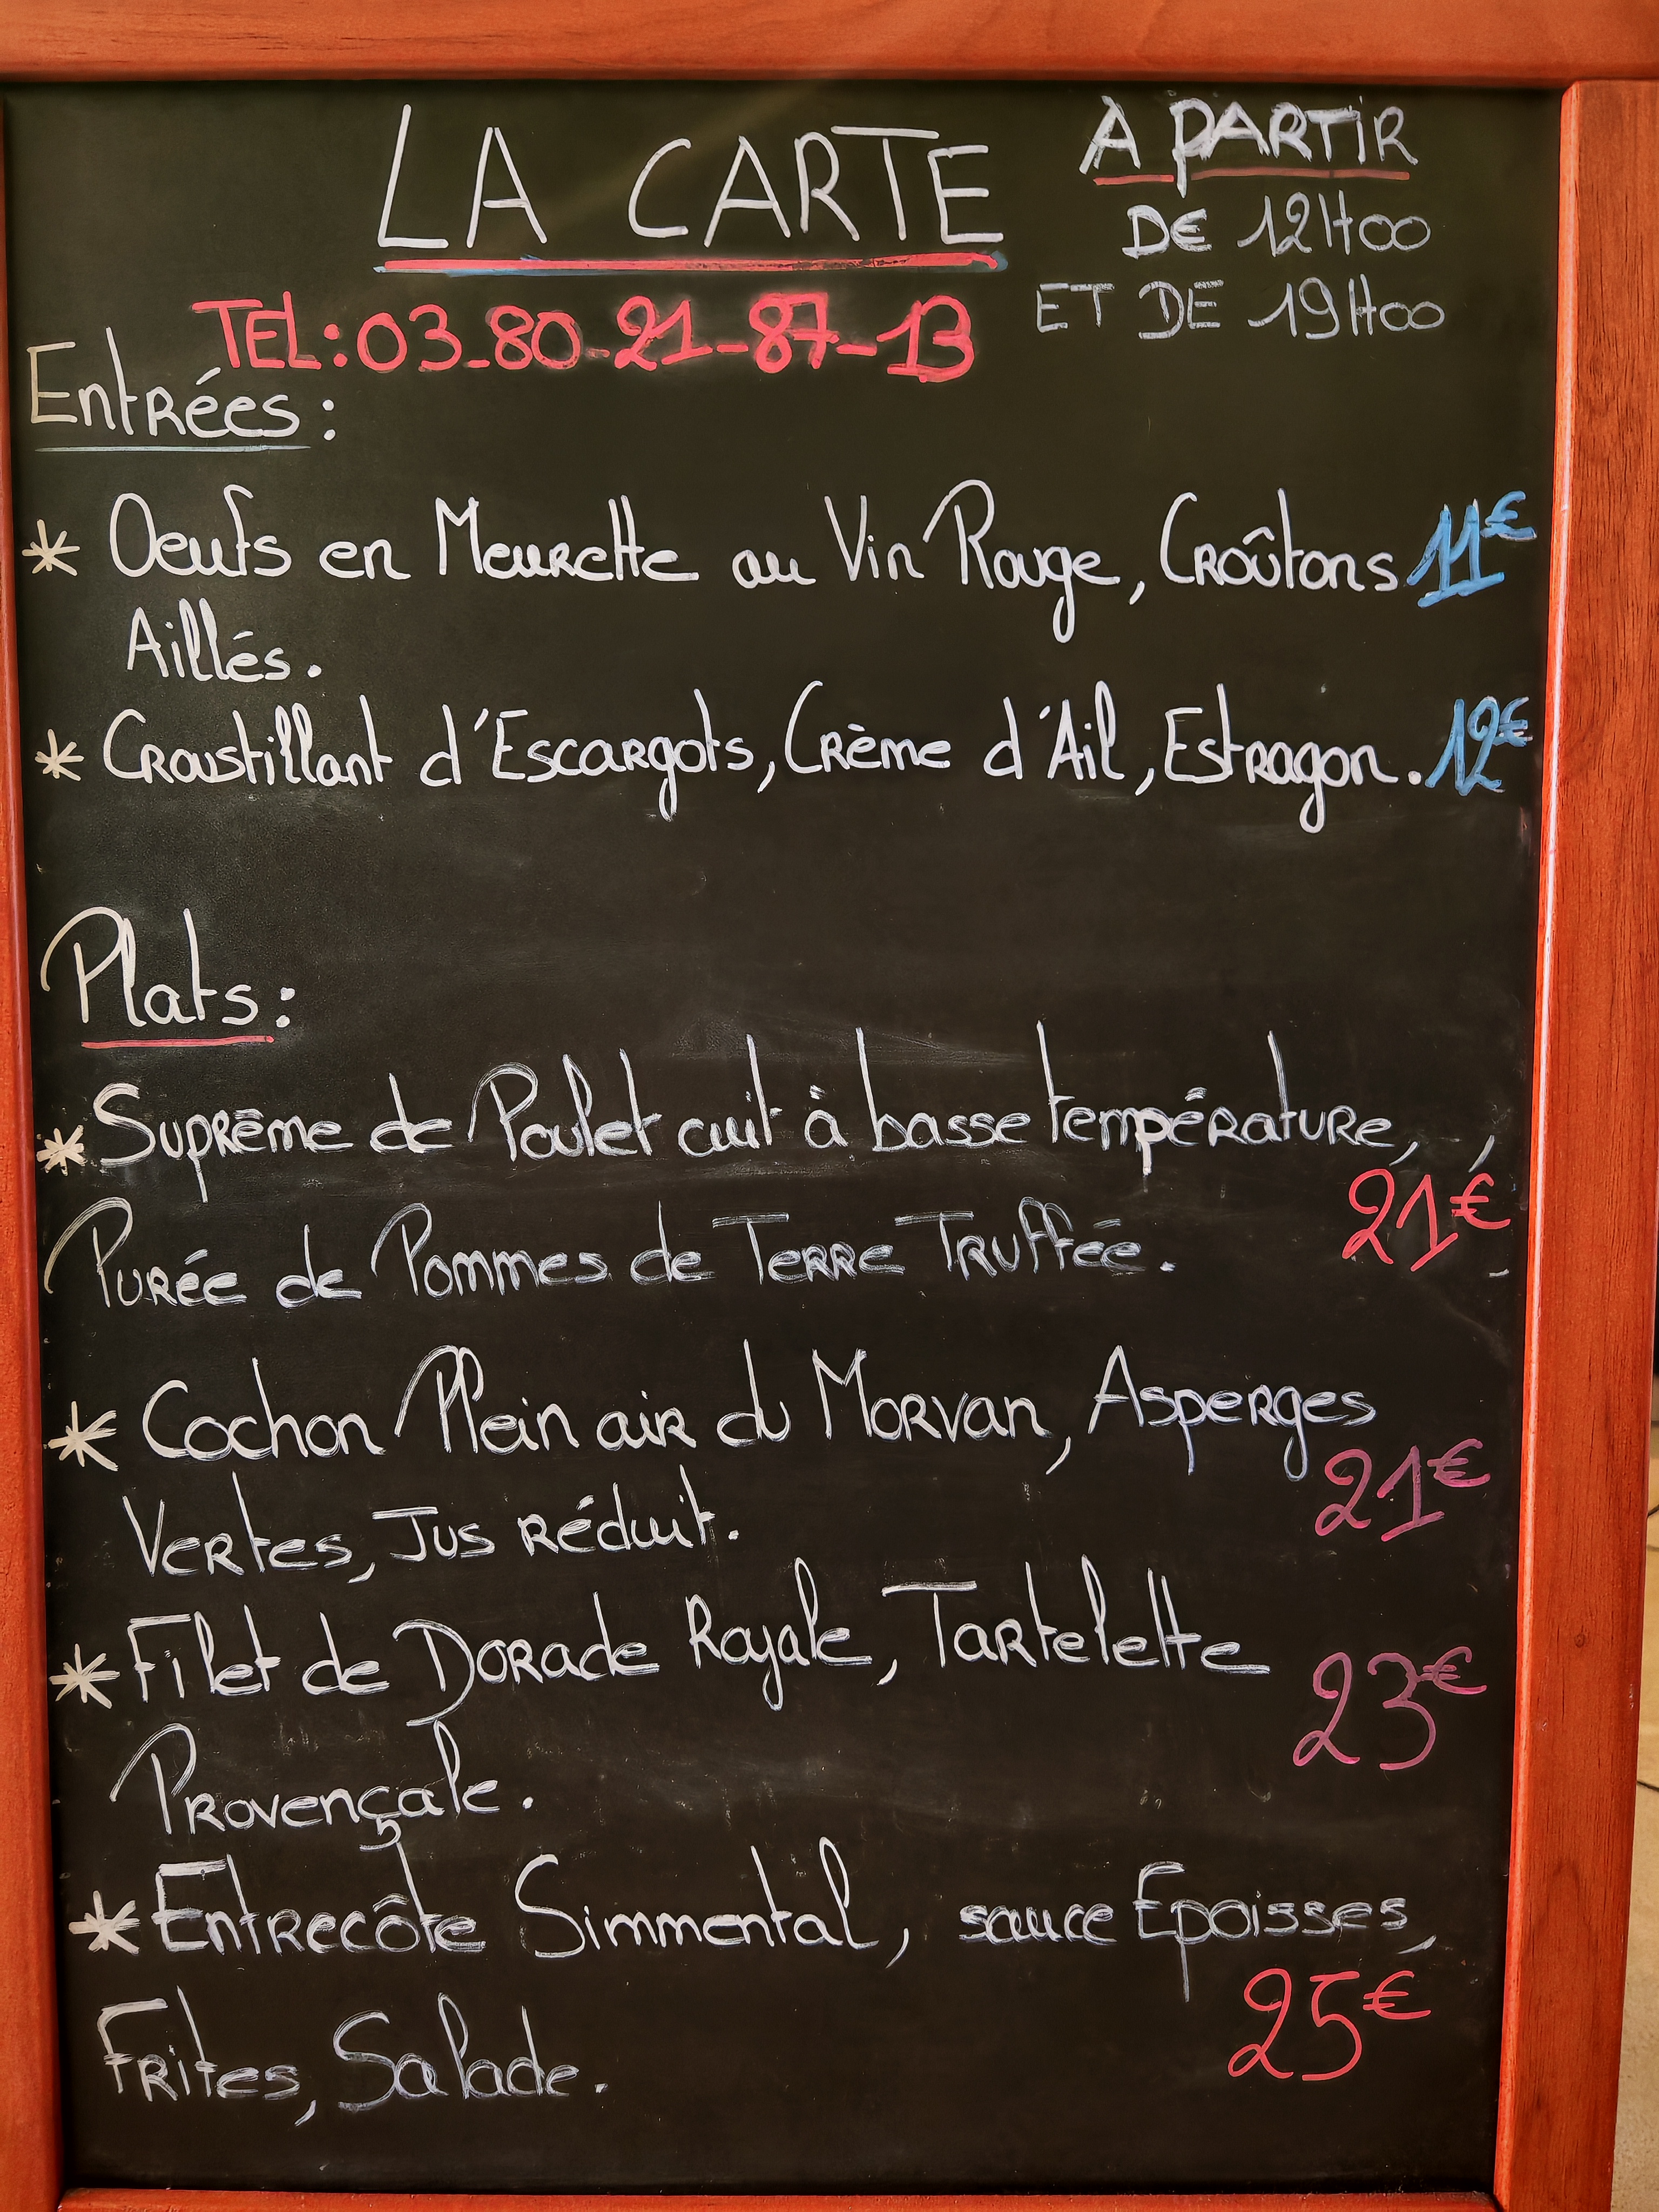 LA CARTE
A PARTIR
DE 12H00
ET DE 19H00
TEL: 03_80-21-87-13
Entrées :
* Oeufs en Meurette au Vin Rouge, Croûtons 11€
Aillés.
* Croustillant d'Escargots, Crème d'Ail, Estragon. 12€
Plats :
* Suprême de Poulet cuit à basse température,
21€
Purée de Pommes de Terre Truffée.
* Cochon Plein air du Morvan, Asperges
21€
Vertes, Jus réduit.
* Filet de Dorade Royale, Tartelette
23€
Provençale.
* Entrecôte Simmental, sauce Epoisses,
25€
Frites, Salade.